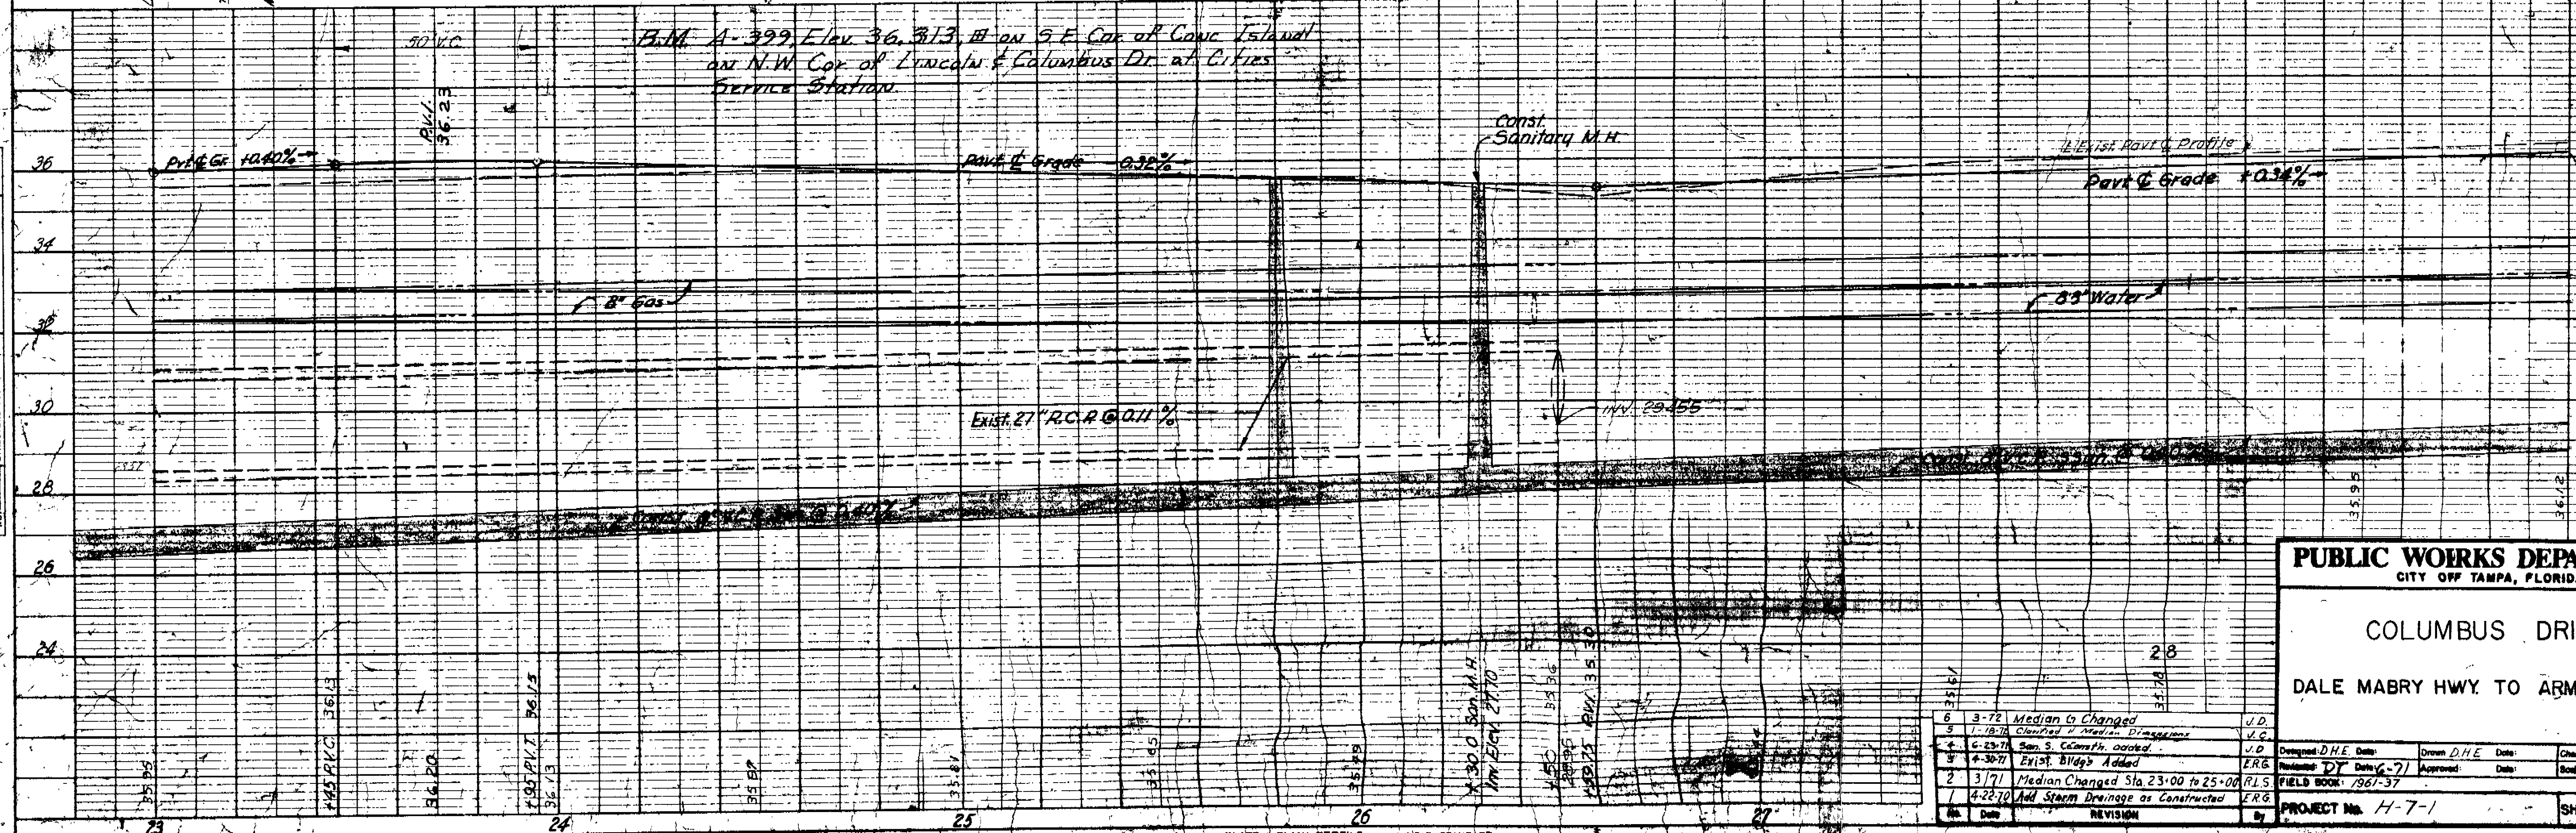 50' V.C.
B.M. A-399, Elev. 36.313, ⊞ on S.E. Cor. of Conc Island
on N.W. Cor. of Lincoln & Columbus Dr. at Cities
Service Station.
P.V.I.
36.23
Const.
Sanitary M.H.
36
Pvt ℄ Gr. +0.40%
Pavt ℄ Grade -0.32%
Exist. Pavt ℄ Profile
Pavt ℄ Grade +0.34%
34
8" Gas
8" Water
32
30
Exist. 27" R.C.P. @ 0.11%
INV. 29.455
28
26
24
35.95
+45 P.V.C. 36.13
36.20
+95 P.V.T. 36.15
36.13
35.97
35.81
35.65
35.49
+30.0 San. M.H.
Inv. Elev. 27.70
+50 35.36
+59.75 P.V.I. 35.30
35.61
35.78
35.95
36.12
28
23
24
25
26
27
PUBLIC WOIRKS DEPA
CITY OFF TAMPA, FLORID
COLUMBUS DRI
DALE MABRY HWY. TO ARM
6 3-72 Median G Changed J.D.
5 1-18-72 Clarified Median Dimensions J.C.
6-23-71 San. S. Const'n. added. J.D
4-30-71 Exist. Bldg's Added E.R.G
2 3/71 Median Changed Sta. 23+00 to 25+00 R.L.S
1 4-22-70 Add Storm Drainage as Constructed E.R.G
No. Date REVISION By
Designed: D.H.E. Date: Drawn D.H.E Date:
Reviewed: DT Date: 6-71 Approved: Date:
FIELD BOOK: 1961-37
PROJECT No. H-7-1